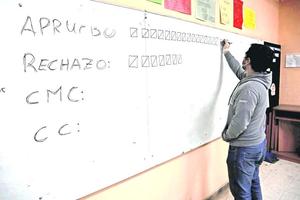 APRUEBO
RECHAZO:
CMC:
CC: